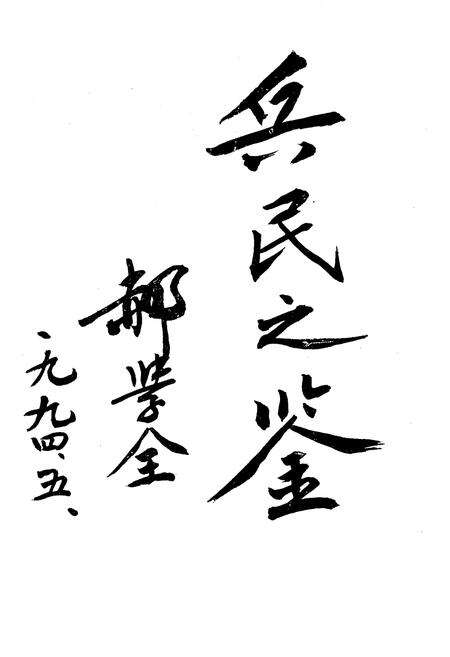 兵民之鉴
郝学全
一九九四、五、